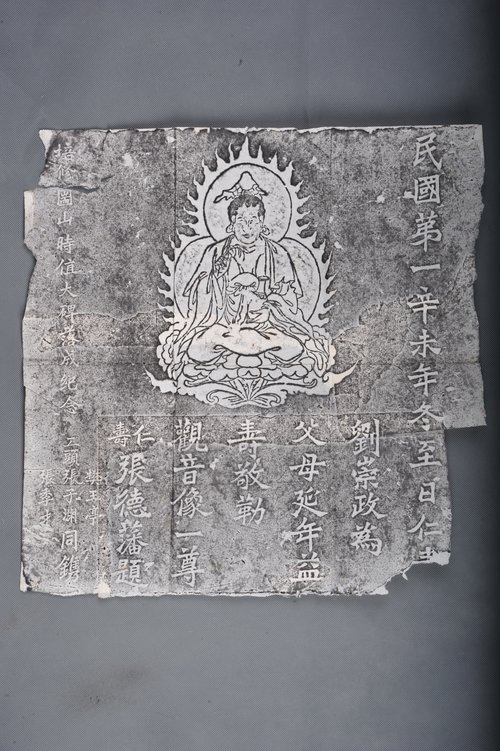 民國第一辛未年冬至日仁
劉崇政為
父母延年益
壽敬勒
觀音像一尊
仁壽張德藩題
山時值大碑落成紀念
樊玉亭
工頭張子湖同鐫